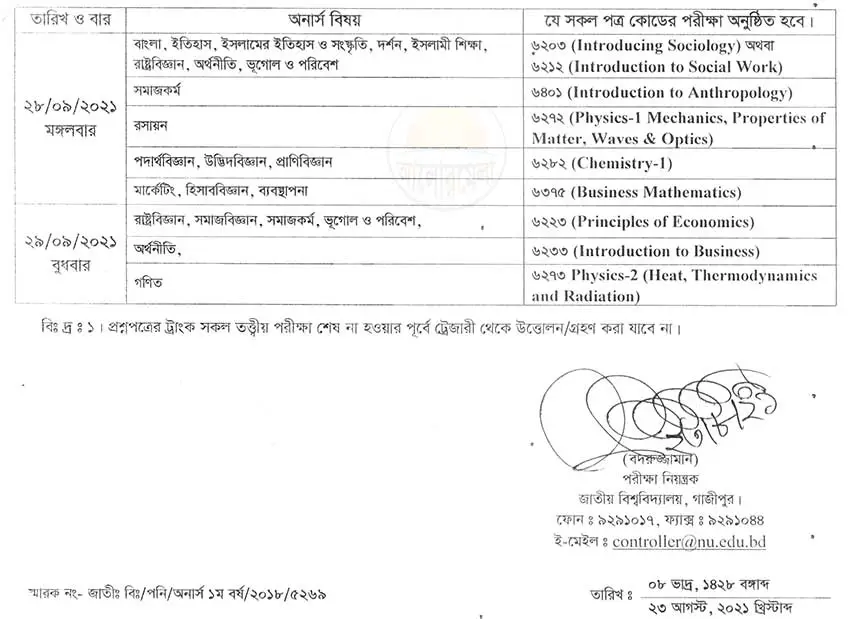 তারিখ ও বার অনার্স বিষয় যে সকল পত্র কোডের পরীক্ষা অনুষ্ঠিত হবে।
২৮/০৯/২০২১
মঙ্গলবার
বাংলা, ইতিহাস, ইসলামের ইতিহাস ও সংস্কৃতি, দর্শন, ইসলামী শিক্ষা,
রাষ্ট্রবিজ্ঞান, অর্থনীতি, ভূগোল ও পরিবেশ
৬২০৩ (Introducing Sociology) অথবা
৬২১২ (Introduction to Social Work)
সমাজকর্ম ৬৪০১ (Introduction to Anthropology)
রসায়ন ৬২৭২ (Physics-1 Mechanics, Properties of
Matter, Waves & Optics)
পদার্থবিজ্ঞান, উদ্ভিদবিজ্ঞান, প্রাণিবিজ্ঞান ৬২৮২ (Chemistry-1)
মার্কেটিং, হিসাববিজ্ঞান, ব্যবস্থাপনা ৬৩৭৫ (Business Mathematics)
২৯/০৯/২০২১
বুধবার
রাষ্ট্রবিজ্ঞান, সমাজবিজ্ঞান, সমাজকর্ম, ভূগোল ও পরিবেশ, ৬২২৩ (Principles of Economics)
অর্থনীতি, ৬২৩৩ (Introduction to Business)
গণিত ৬২৭৩ Physics-2 (Heat, Thermodynamics
and Radiation)
আলোরমেলা
বিঃ দ্রঃ ১। প্রশ্নপত্রের ট্রাংক সকল তত্ত্বীয় পরীক্ষা শেষ না হওয়ার পূর্বে ট্রেজারী থেকে উত্তোলন/গ্রহণ করা যাবে না।
২৩/৮/২১
(বদরুজ্জামান)
পরীক্ষা নিয়ন্ত্রক
জাতীয় বিশ্ববিদ্যালয়, গাজীপুর।
ফোন ঃ ৯২৯১০১৭, ফ্যাক্স ঃ ৯২৯১০৪৪
ই-মেইল ঃ controller@nu.edu.bd
স্মারক নং- জাতীঃ বিঃ/পনি/অনার্স ১ম বর্ষ/২০১৮/৫২৬৯
তারিখ ঃ ০৮ ভাদ্র, ১৪২৮ বঙ্গাব্দ
২৩ আগস্ট, ২০২১ খ্রিস্টাব্দ